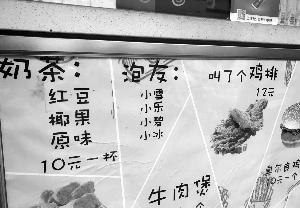 奶茶:
红豆
椰果
原味
10元一杯
泡友:
小雪
小乐
小碧
小冰
叫了个鸡排
12元
牛肉煲
10元一个